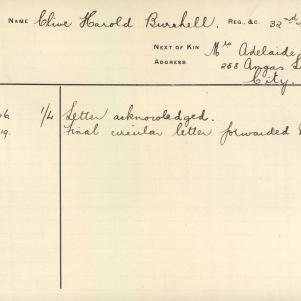 NAME Clive Harold Burrhell. REG. &C. 32nd
NEXT OF KIN Mrs Adelaide
ADDRESS 258 Angas
City.
16 1/4 Letter acknowledged.
19. Final circular letter forwarded